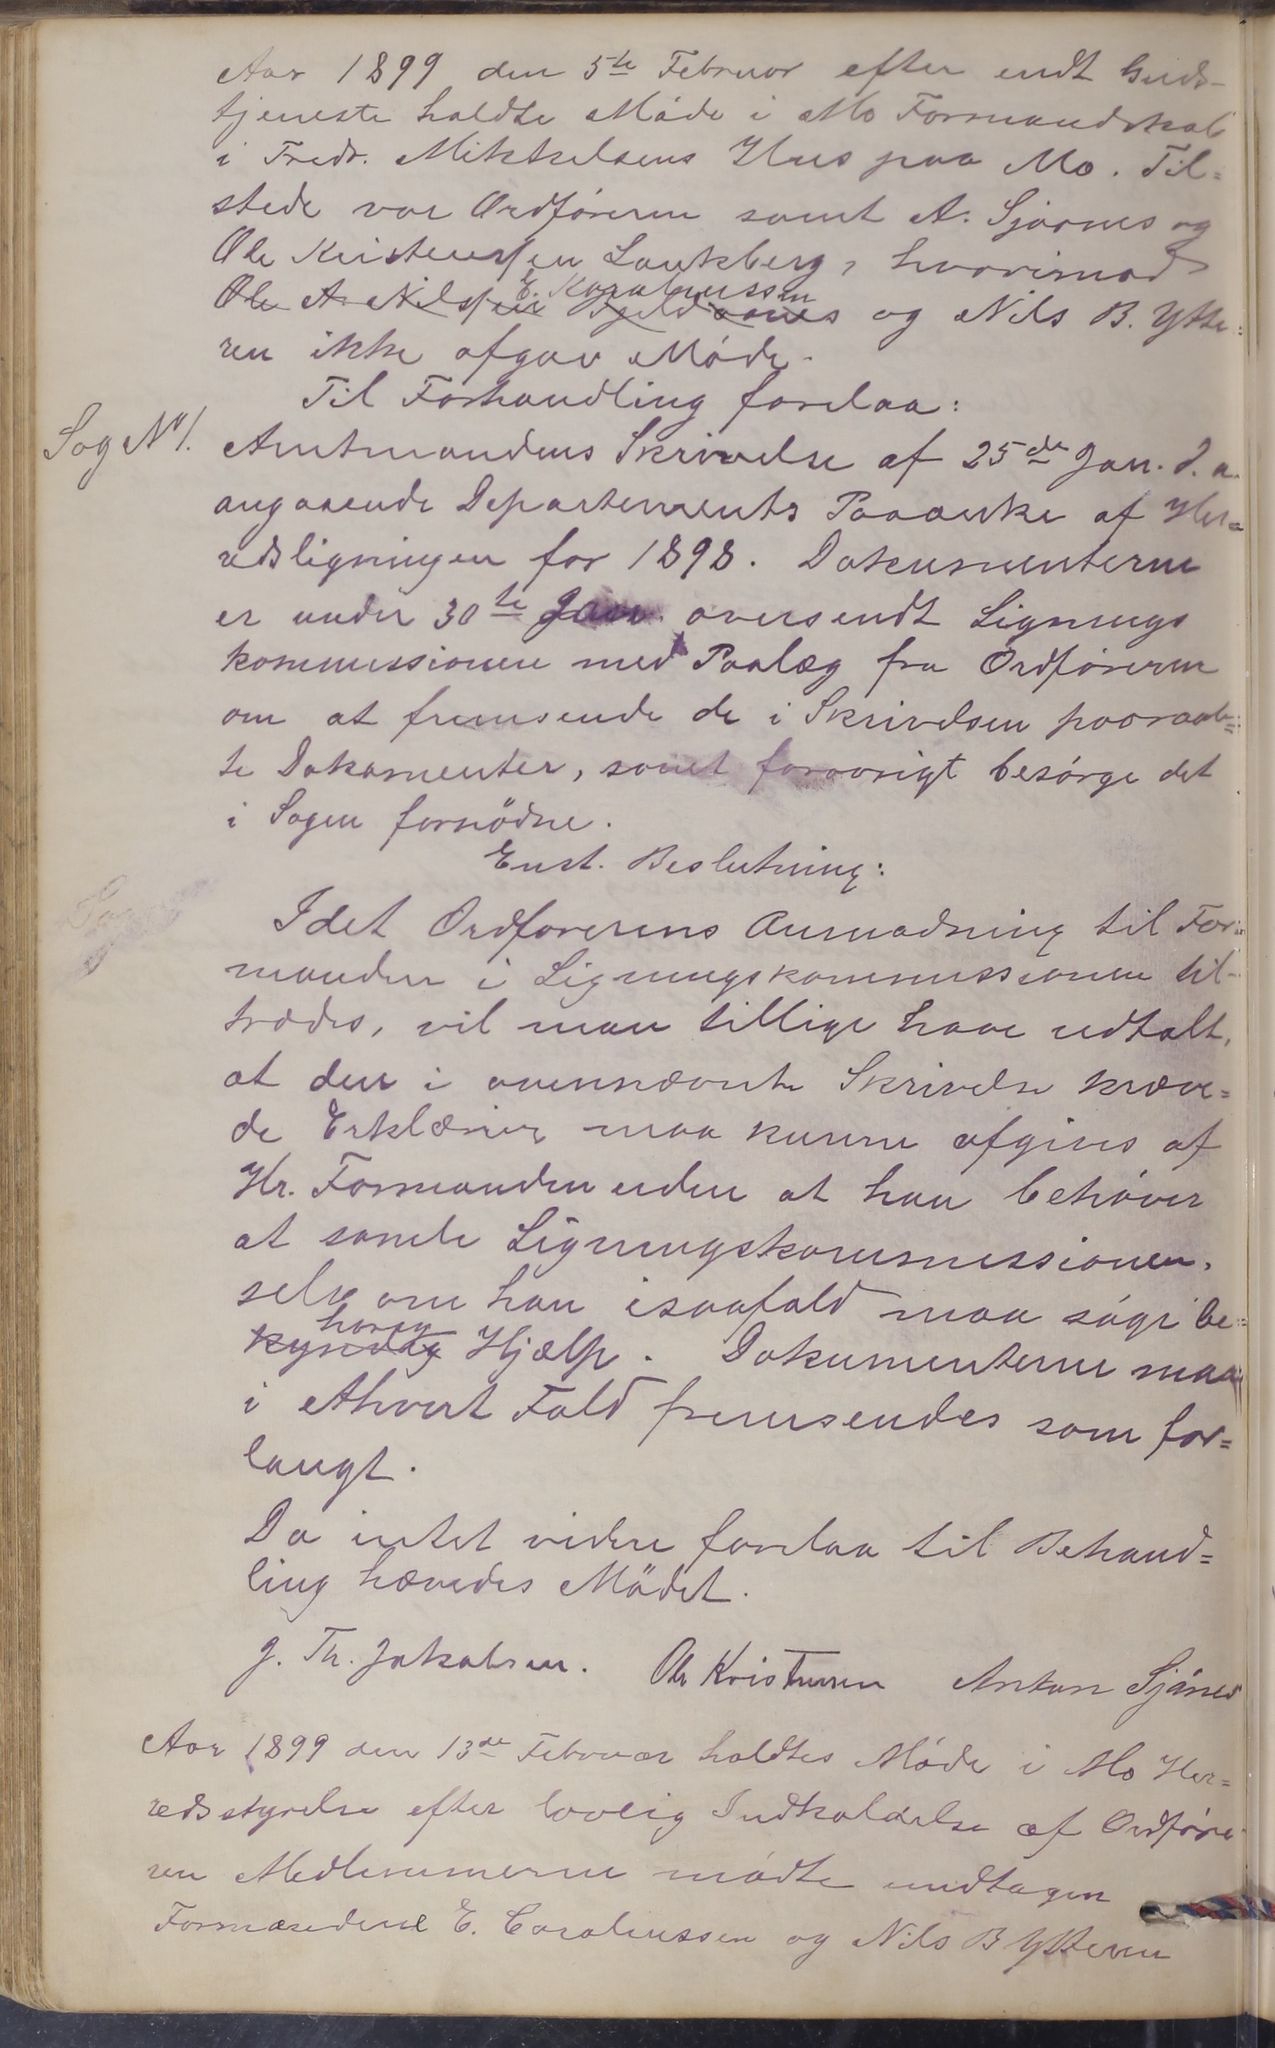 Aar 1899 den 5te Februar efter endt Guds-
tjeneste holdte Møde i Mo Formandskab
i Fredr. Mikkelsens Hus paa Mo. Til-
stede var Ordføreren samt A. Sjaanes og
Ole Kristenssen Lankberg, hvorimod
E. Karolinussen
Ole A. Nilssen og Nils B. Ytte-
ren ikke afgav Møde.
Til Forhandling forelaa:
Sag No 1. Amtmandens Skrivelse af 25de Jan. d. a.
angaaende Departements Paaanke af Her-
redsligningen for 1898. Dokumenterne
er under 30te Jan. oversendt Lignings
kommissionen med Paalæg fra Ordføreren
om at fremsende de i Skrivelsen paaraab-
te Dokumenter, samt forøvrigt besørge det
i Sagen fornødne.
Enst. Beslutning:
Idet Ordførerens Anmodning til For-
manden i Ligningskommissionen til-
trædes, vil man tillige have udtalt,
at den i ovennævnte Skrivelse kræve-
de Erklæring maa kunne afgives af
Hr. Formanden uden at han behøver
at samle Ligningskommissionen,
selv om han isaafald maa søge be-
kyndig Hjælp. Dokumenterne maa
i ethvert Fald fremsendes som for-
langt.
Da intet videre forelaa til Behand-
ling hævedes Mødet.
J. Th. Jakobsen. Ole Kristensen Anton Sjånes
Aar 1899 den 13de Februar holdtes Møde i Mo Her-
redsstyrelse efter lovlig Indkaldelse af Ordføre-
ren Medlemmerne mødte undtagen
Formændene E. Carolinussen og Nils B Ytteren